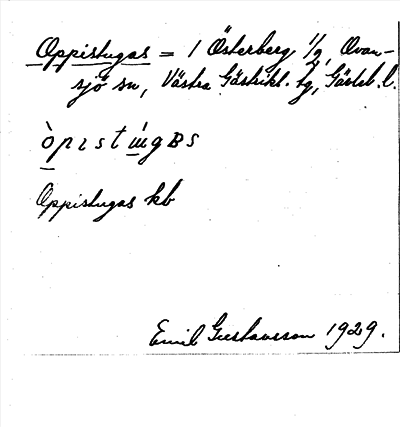 Oppistugas = 1 Österberg 1/2, Ovan-
sjö sn, Västra Gästrikl. tg, Gävleb. l.
òpɪstǘgʙs
Oppistugas kb
Emil Gustavsson 1929.